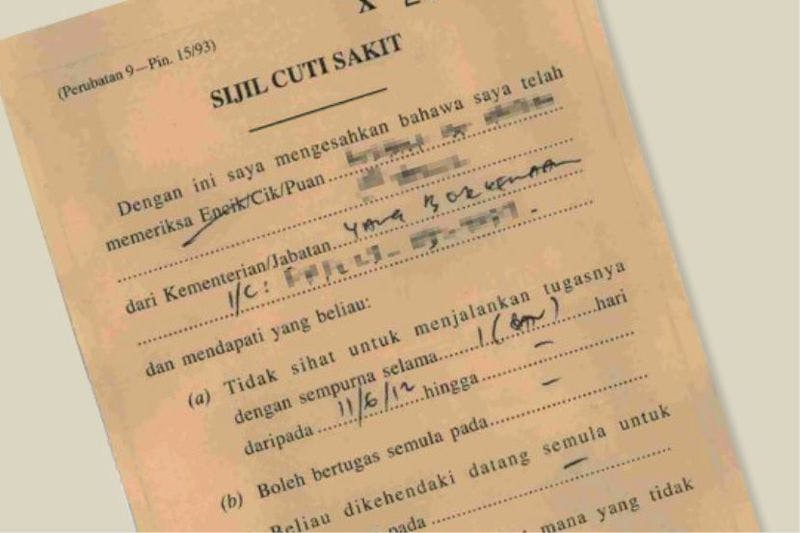 X
(Perubatan 9—Pin. 15/93)
SIJIL CUTI SAKIT
Dengan ini saya mengesahkan bahawa saya telah
memeriksa Encik/Cik/Puan
dari Kementerian/Jabatan YANG BERKENAAN
I/C:
dan mendapati yang beliau:
(a) Tidak sihat untuk menjalankan tugasnya
dengan sempurna selama 1 ( ) hari
daripada 11/6/12 hingga –
(b) Boleh bertugas semula pada –
Beliau dikehendaki datang semula untuk
pada –
mana yang tidak